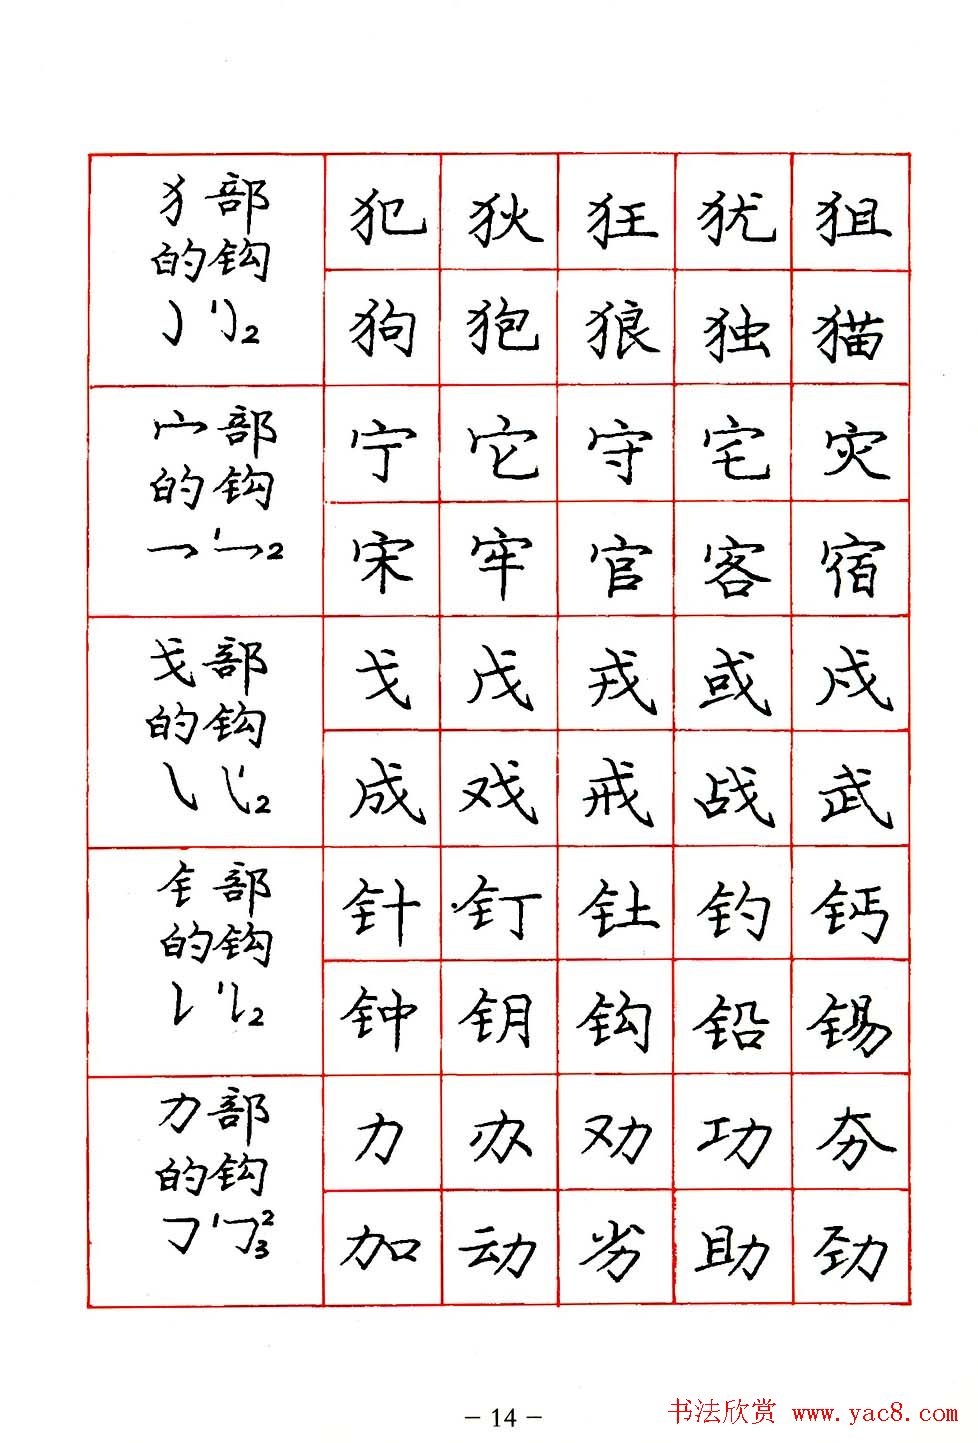 犭部
的钩
亅 1亅2
犯 狄 狂 犹 狙
狗 狍 狼 独 猫
宀部
的钩
乛 1乛2
宁 它 守 宅 灾
宋 牢 官 客 宿
戈部
的钩
㇂ 1㇂2
戈 戊 戎 或 戍
成 戏 戒 战 武
钅部
的钩
𠄌 1𠄌2
针 钉 钍 钓 钙
钟 钥 钩 铅 锡
力部
的钩
㇆ 1㇆2 3
力 办 劝 功 夯
加 动 劣 助 劲
- 14 -
书法欣赏 www.yac8.com